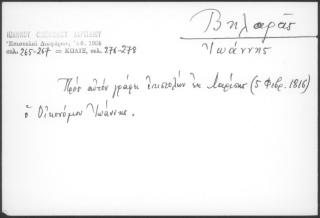 Βηλαρᾶς
Ἰωάννης
ΙΩΑΝΝΟΥ ΟΙΚΟΝΟΜΟΥ ΛΑΡΙΣΑΙΟΥ
Ἐπιστολαὶ Διαφόρων, Ἀθ. 1964
σελ. 265-267 = ΚΠΛΤΕ, σελ. 276-278
Πρὸς αὐτὸν γράφει ἐπιστολὴν ἐκ Λαρίσης (5 Φεβρ. 1816)
ὁ Οἰκονόμου Ἰωάννης.